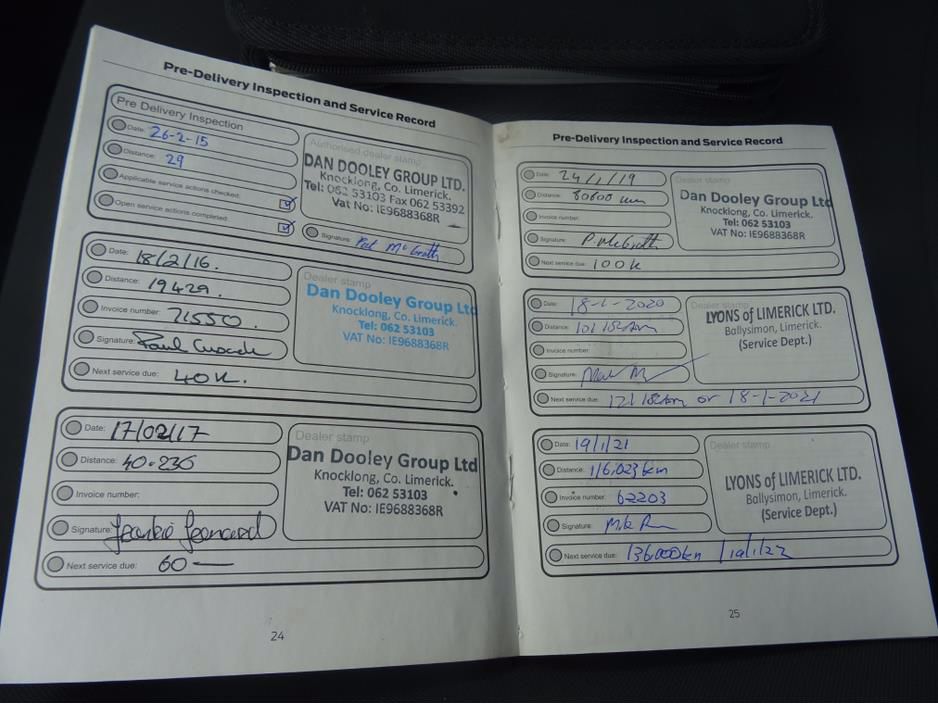 Pre-Delivery Inspection and Service Record
Pre Delivery Inspection
Date: 26-2-15
Distance: 29
Applicable service actions checked:
Open service actions completed:
Authorised dealer stamp
DAN DOOLEY GROUP LTD.
Knocklong, Co. Limerick.
Tel: 062 53103 Fax 062 53392
Vat No: IE9688368R
Signature: Pat McGrath
Date: 18/2/16.
Distance: 19429.
Invoice number: 71550.
Signature: Paul Cusack
Next service due: 40K.
Dealer stamp
Dan Dooley Group Ltd
Knocklong, Co. Limerick.
Tel: 062 53103
VAT No: IE9688368R
Date: 17/02/17
Distance: 40-236
Invoice number:
Signature: Leonard
Next service due: 60 —
Dealer stamp
Dan Dooley Group Ltd
Knocklong, Co. Limerick.
Tel: 062 53103
VAT No: IE9688368R
24
Pre-Delivery Inspection and Service Record
Date: 24/1/19
Distance: 80600 km
Invoice number:
Signature: P. McGrath
Next service due: 100K
Dealer stamp
Dan Dooley Group Ltd
Knocklong, Co. Limerick.
Tel: 062 53103
VAT No: IE9688368R
Date: 18-1-2020
Distance: 101 182km
Invoice number:
Signature:
Next service due: 121 182km or 18-1-2021
Dealer stamp
LYONS of LIMERICK LTD.
Ballysimon, Limerick.
(Service Dept.)
Date: 19/1/21
Distance: 116,023km
Invoice number: 62203
Signature: Mike
Next service due: 136,000km / 19/1/22
Dealer stamp
LYONS of LIMERICK LTD.
Ballysimon, Limerick.
(Service Dept.)
25